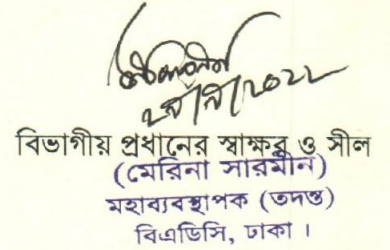 বিভাগীয় প্রধানের স্বাক্ষর ও সীল
(মেরিনা সারমীন)
মহাব্যবস্থাপক (তদন্ত)
বিএডিসি, ঢাকা ।